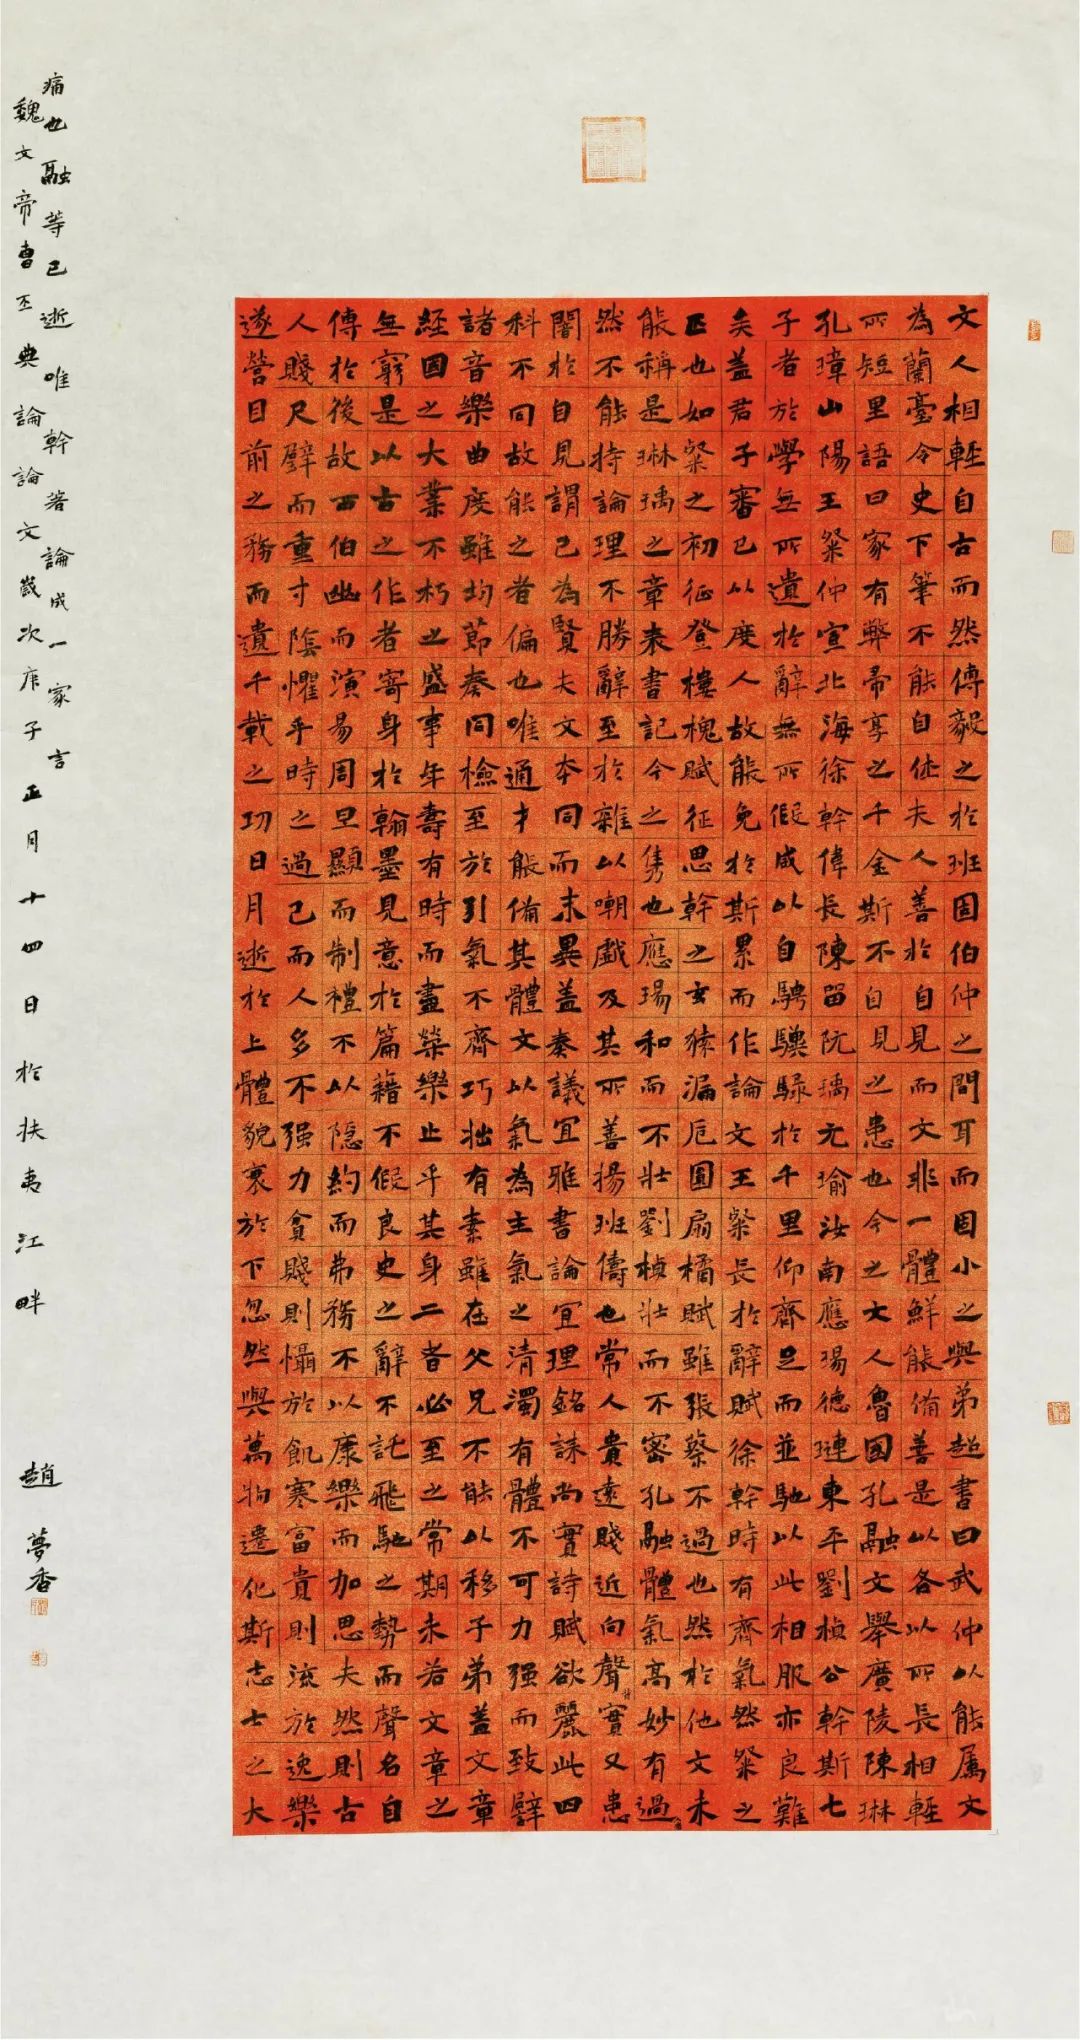 文人相輕自古而然傅毅之於班固伯仲之間耳而固小之與弟超書曰武仲以能屬文
為蘭臺令史下筆不能自休夫人善於自見而文非一體鮮能備善是以各以所長相輕
所短里語曰家有弊帚享之千金斯不自見之患也今之文人魯國孔融文舉廣陵陳琳
孔璋山陽王粲仲宣北海徐幹偉長陳留阮瑀元瑜汝南應瑒德璉東平劉楨公幹斯七
子者於學無所遺於辭無所假咸以自騁驥騄於千里仰齊足而並馳以此相服亦良難
矣盖君子審己以度人故能免於斯累而作論文王粲長於辭賦徐幹時有齊氣然粲之
匹也如粲之初征登樓槐賦征思幹之玄猿漏卮圓扇橘賦雖張蔡不過也然於他文未
能稱是琳瑀之章表書記今之雋也應瑒和而不壯劉楨壯而不密孔融體氣高妙有過
然不能持論理不勝辭至於雜以嘲戲及其所善揚班儔也常人貴遠賤近向聲背實又患
闇於自見謂己為賢夫文本同而末異盖奏議宜雅書論宜理銘誄尚實詩賦欲麗此四
科不同故能之者偏也唯通才能備其體文以氣為主氣之清濁有體不可力强而致譬
諸音樂曲度雖均節奏同檢至於引氣不齊巧拙有素雖在父兄不能以移子弟盖文章
經國之大業不朽之盛事年壽有時而盡榮樂止乎其身二者必至之常期未若文章之
無窮是以古之作者寄身於翰墨見意於篇籍不假良史之辭不託飛馳之勢而聲名自
傳於後故西伯幽而演易周旦顯而制禮不以隱約而弗務不以康樂而加思夫然則古
人賤尺璧而重寸陰懼乎時之過已而人多不强力貧賤則懾於飢寒富貴則流於逸樂
遂營目前之務而遺千載之功日月逝於上體貌衰於下忽然與萬物遷化斯志士之大
痛也融等已逝唯幹著論成一家言
魏文帝曹丕典論論文歲次庚子正月十四日於扶夷江畔 趙夢香